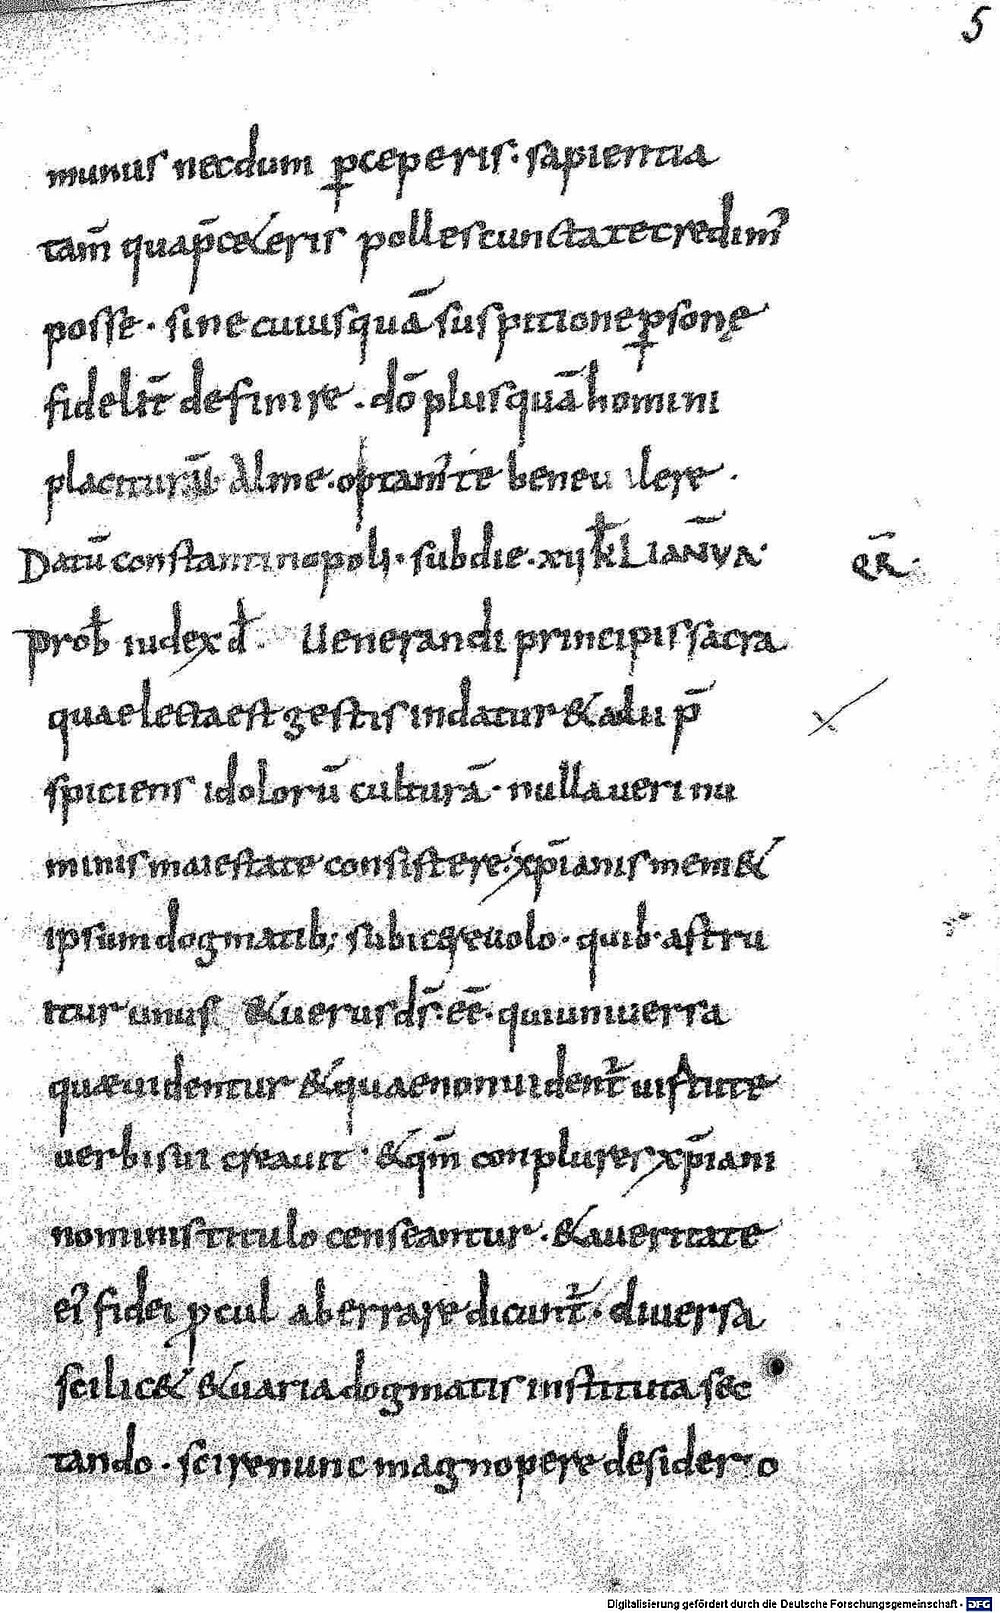 5
munus necdum ꝑceperis · sapientia
tam̄ quap̄cet&eris polles cunctatecredim᾽
posse · sine cuiusquā suspitione ꝑsonę
fidelit̄ definire · dō plusquā homini
placiturū Alme · optam᾽ te bene ualere ·
Datū constantinopoli · subdie · xij kł IANVA·
QR̄·
prob̄ iudex đ · Uenerandi principis sacra
quaelectaest gestis indatur & adu p̄
spiciens idolorū culturā · nulla ueri nu
minis maiestate consistere · xp̄ianis mem&
ipsum dogmatib; subicere uolo · quib· astru
itur unus & uerus ds̄ · eē · qui uniuersa
quae uidentur & quae non uident̄ uirtute
uerbi sui creauit · & qm̄ conplures xp̄iani
nominis titulo censeantur · & aueritate
ei᾽ fidei ꝓcul aberrare dicunt̄ · diuersa
scilic& & uaria dogmatis instituta sec
tando · scire nunc magnopere desidero
Digitalisierung gefördert durch die Deutsche Forschungsgemeinschaft - DFG